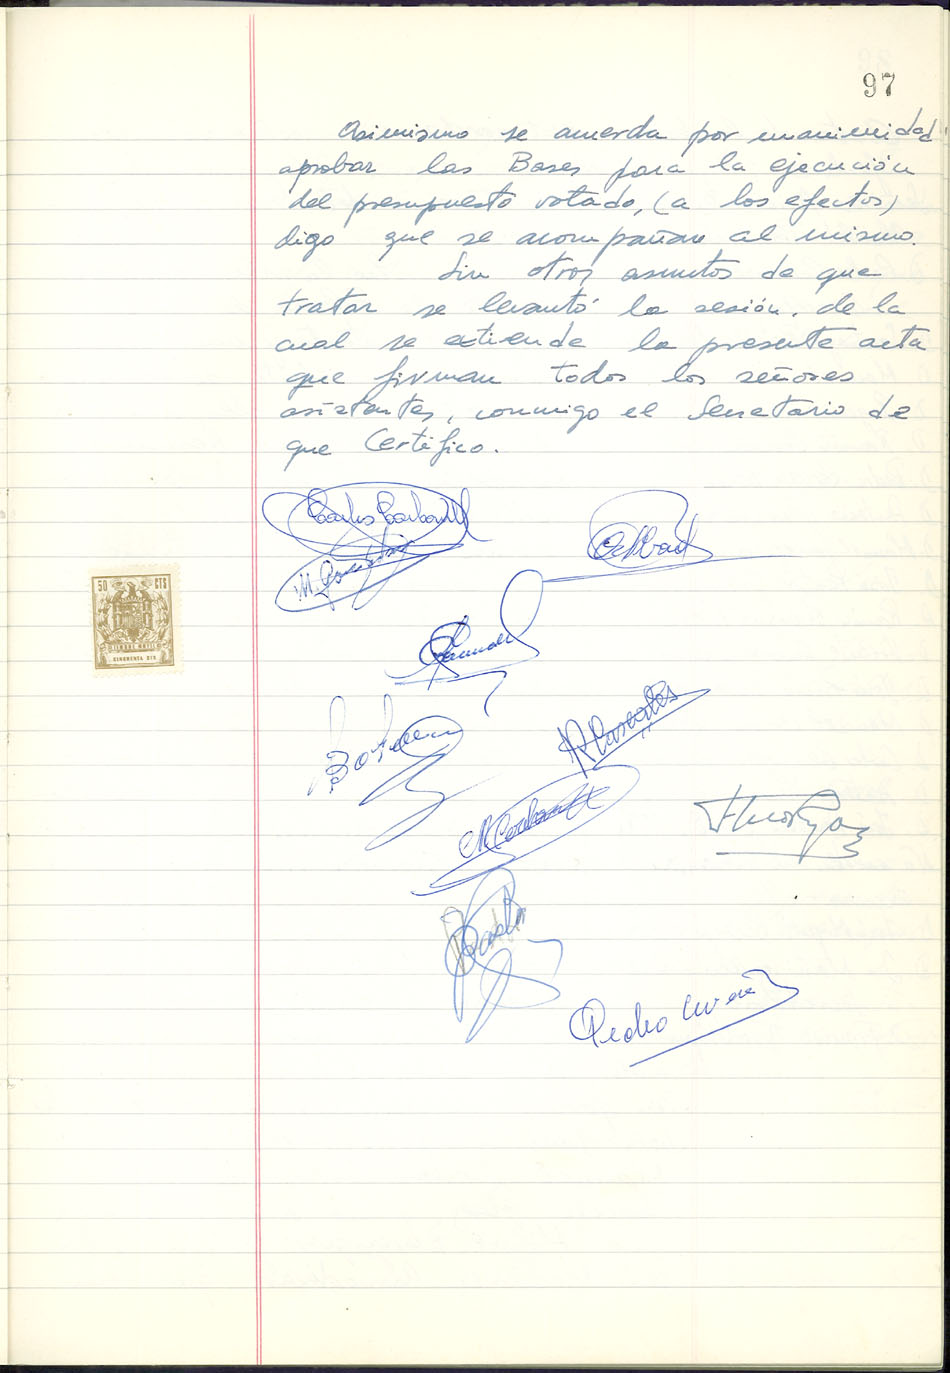 97
Asimismo se acuerda por unanimidad
aprobar las Bases para la ejecución
del presupuesto votado, (a los efectos)
digo que se acompañan al mismo.
Sin otros asuntos de que
tratar se levantó la sesión, de la
cual se extiende la presente acta
que firman todos los señores
asistentes, conmigo el Secretario de
que Certifico.
Carlos
M.
50 CTS
TIMBRE MOVIL
CINCUENTA CTS
Pedro